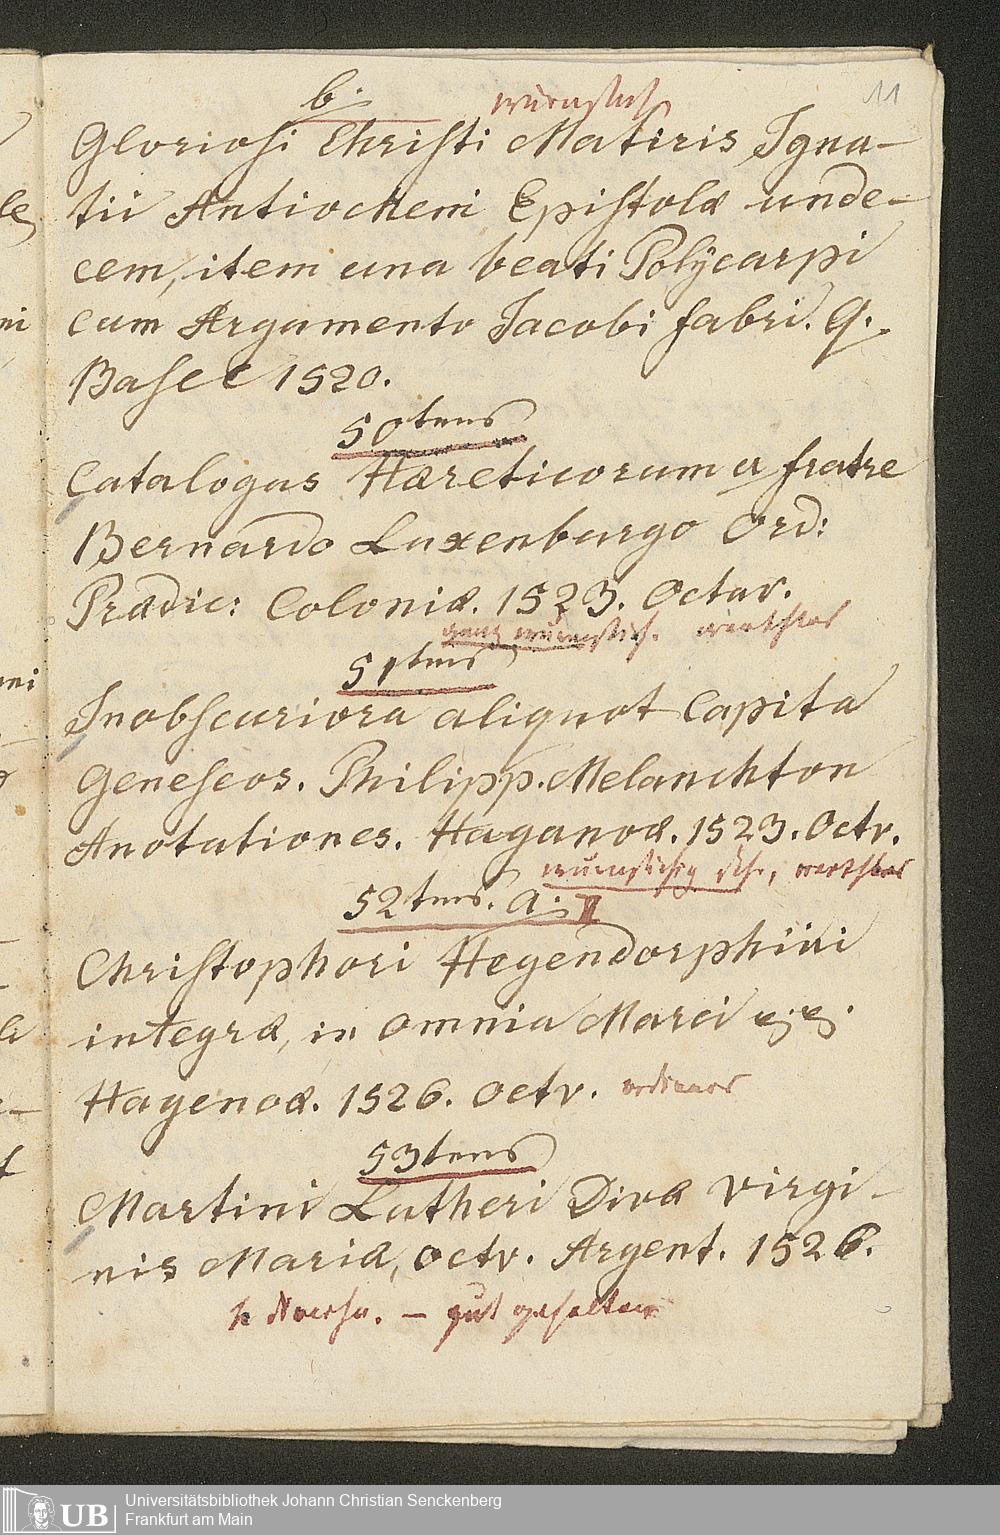 11
b.
Gloriosi Christi Matiris Igna-
tii Antiocheni Epistolæ unde-
cem, item una beati Polÿcarpi
cum Argumento Jacobi fabri. Q.
Basel 1520.
50tens
Catalogus Hæreticorum a fratre
Bernardo Luxenburgo Ord:
Prædic: Coloniæ. 1523. Octav.
ganz wurmstich. werthlos
51tens
Inobscuriora aliquot Capita
Geneseos. Philipp. Melanchton
Anotationes. Haganoæ. 1523. Octv.
werthlos
52tens. a. II
Christophori Hegendorphini
integræ, in omnia Marci
Hagenoæ. 1526. Octv.
53tens
Martini Lutheri Divæ Virgi-
nis Mariæ, octv. Argent. 1526.
– gut gehalten
UB
Universitätsbibliothek Johann Christian Senckenberg
Frankfurt am Main